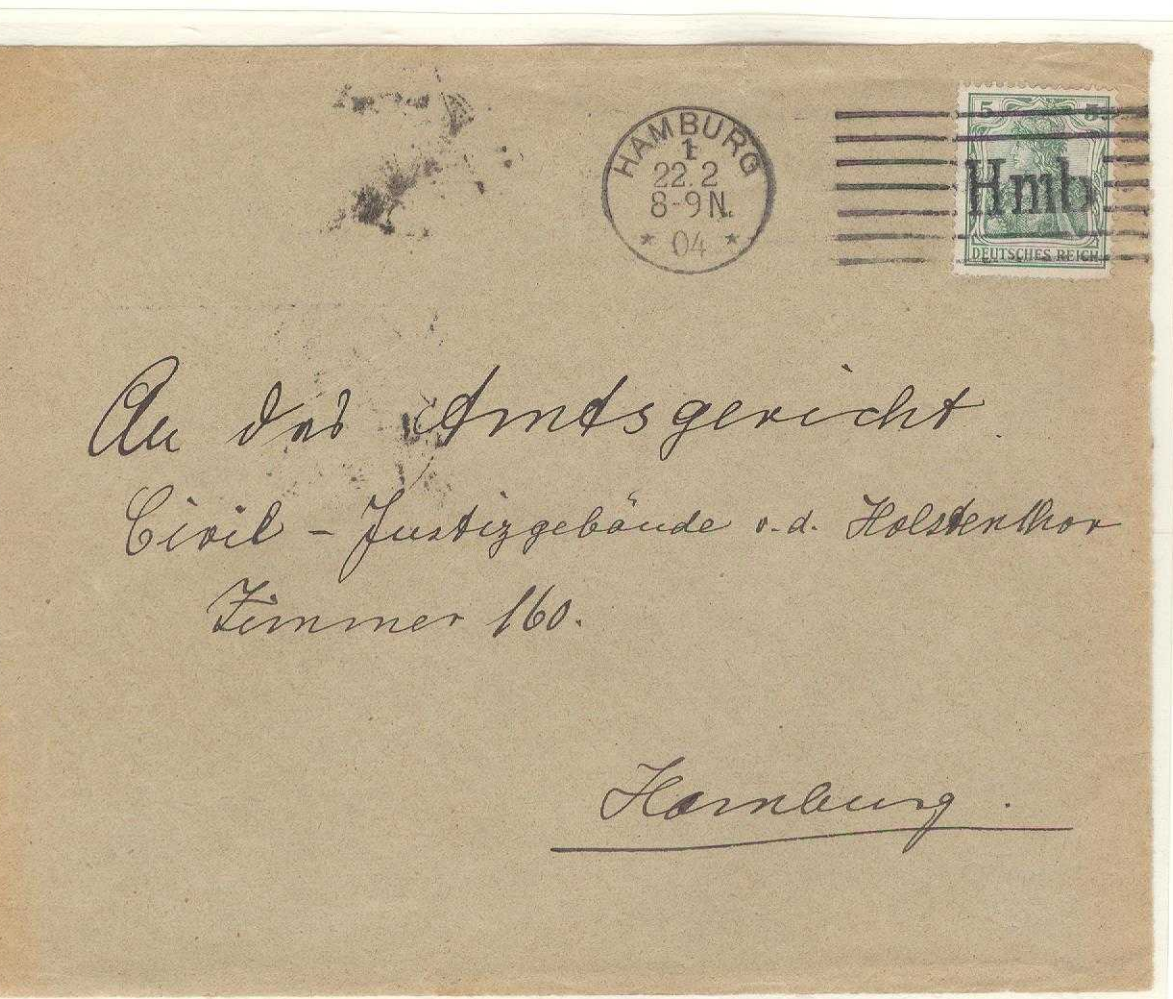 HAMBURG
1
22.2
8-9 N.
* 04 *
5 5
Hmb
DEUTSCHES REICH
An das Amtsgericht
Civil - Justizgebäude v. d. Holstenthor
Zimmer 160.
Hamburg.